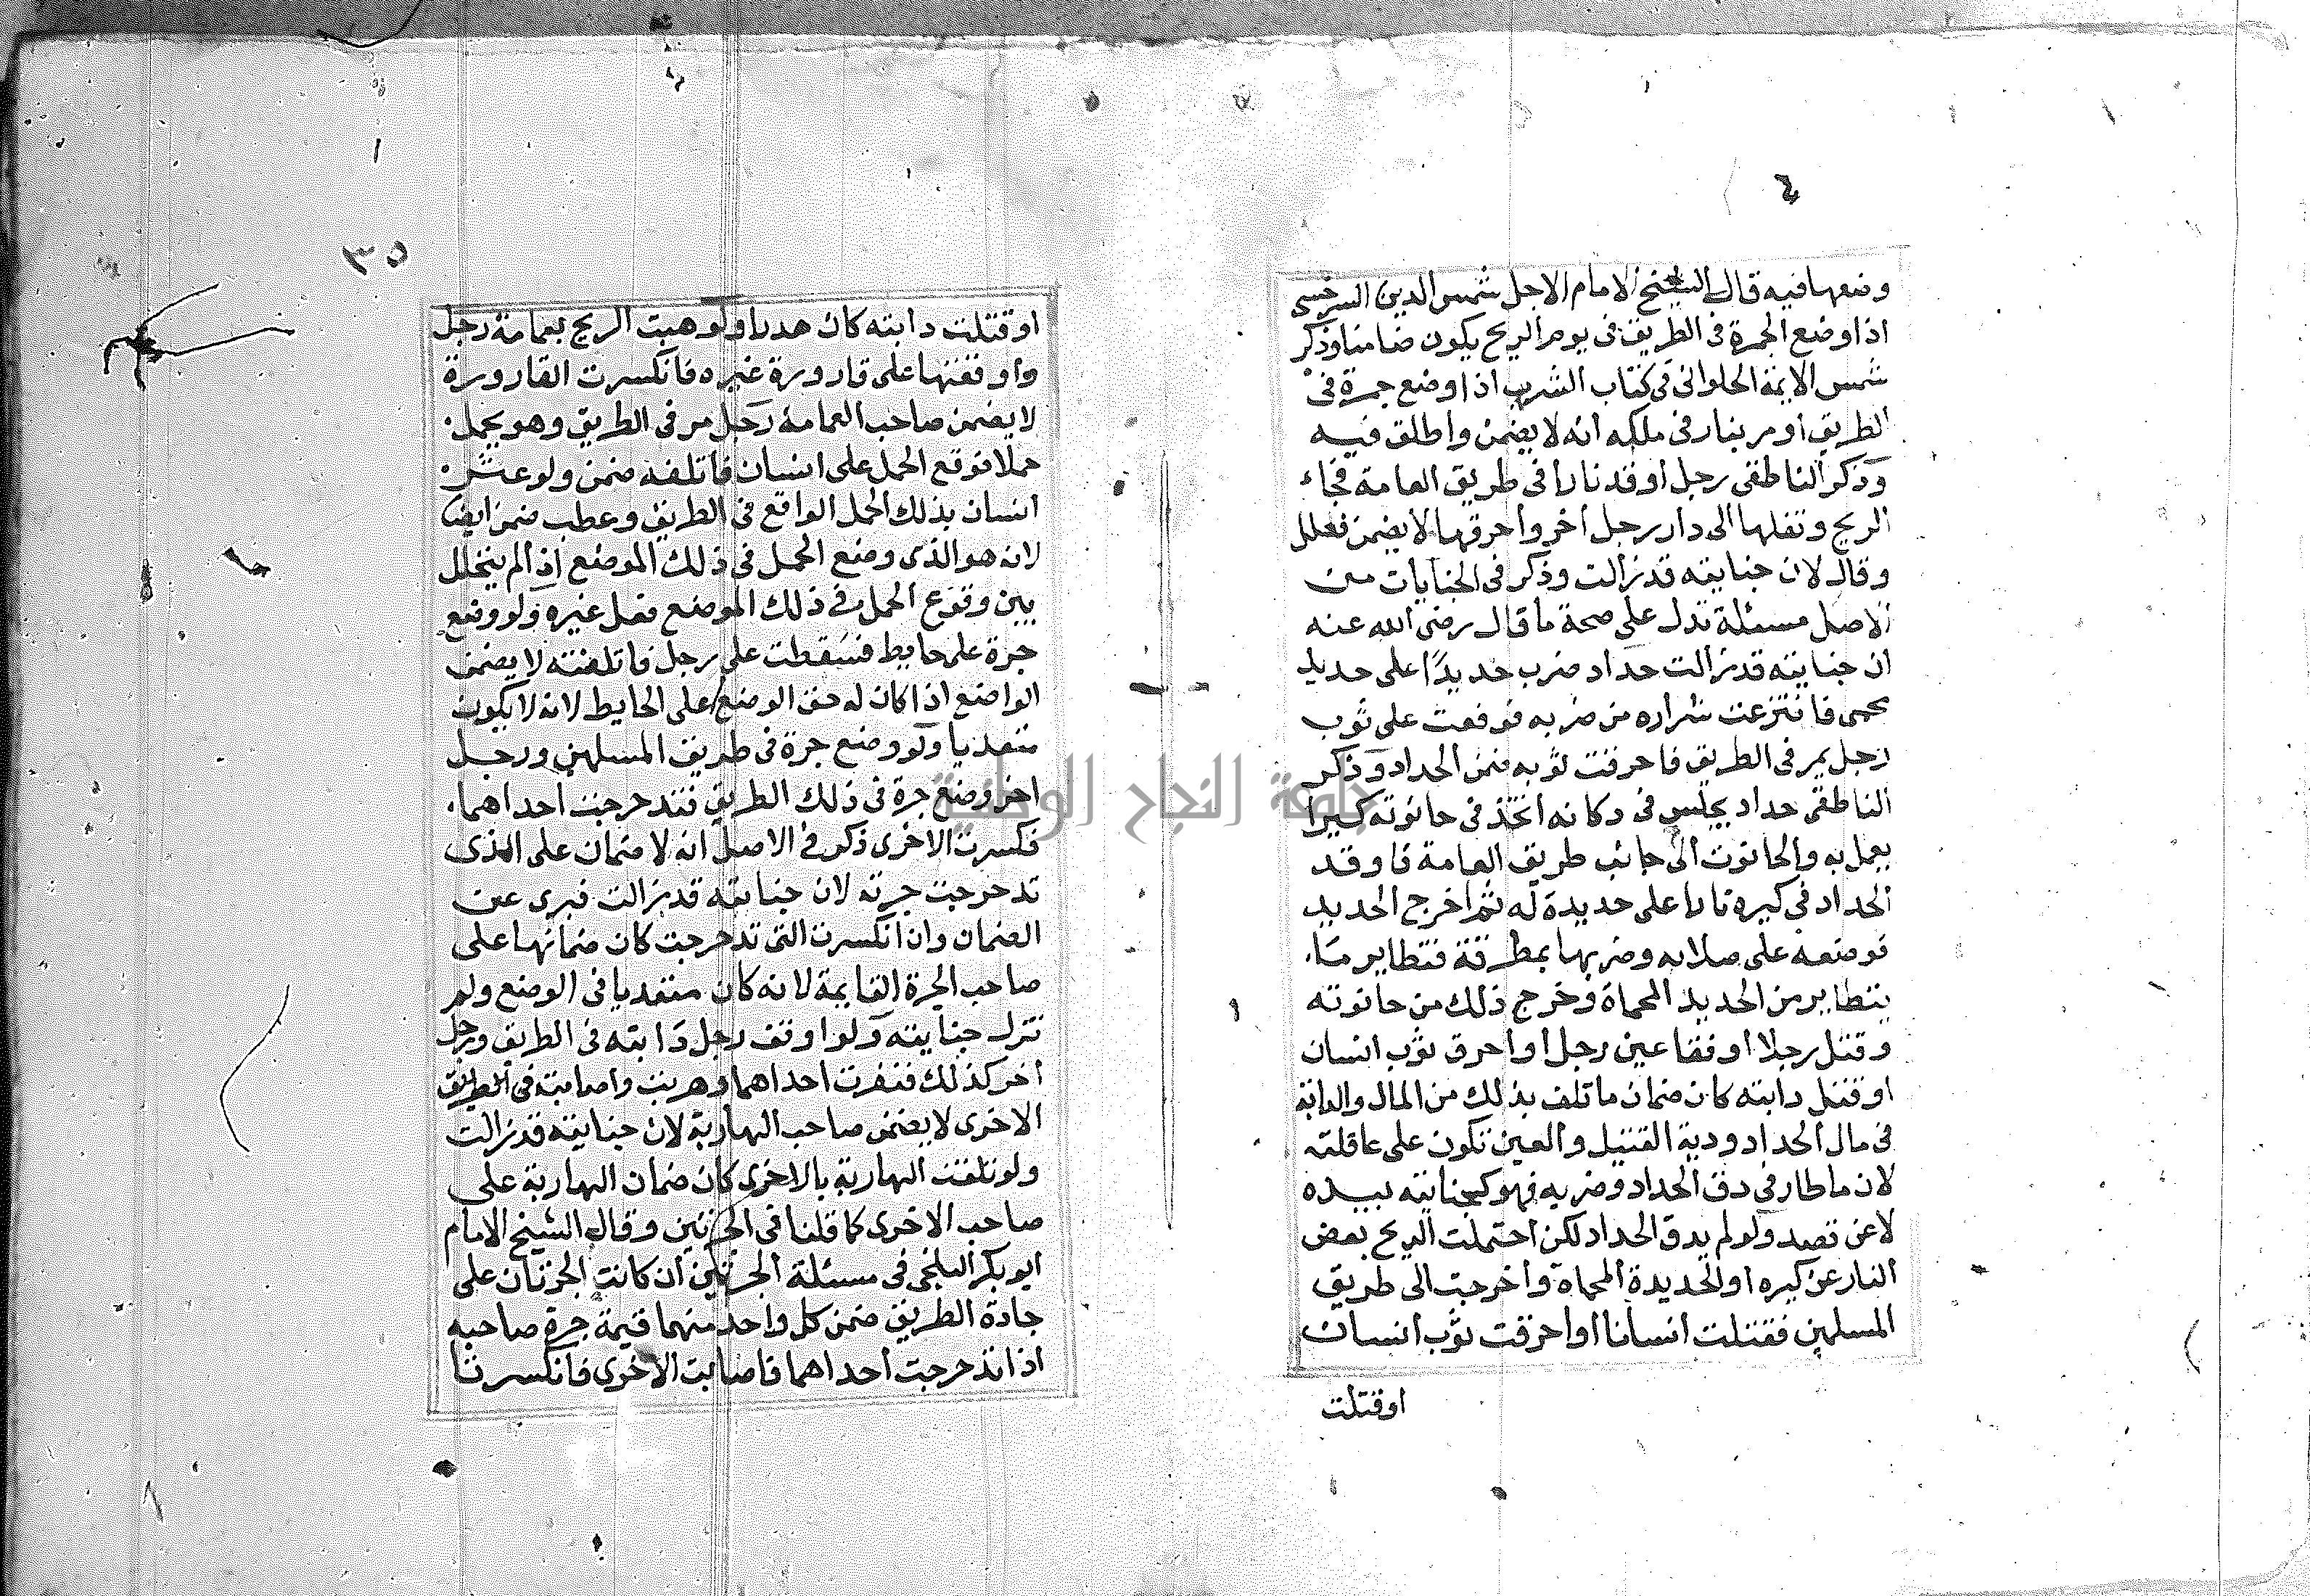 وضعها فيه قال الشيخ الامام الاجل شمس الدين السرخسى
اذا وضع الجمرة فى الطريق فى يوم الريح يكون ضامنا وذكر
شمس الايمة الحلوانى فى كتاب الشرب اذا وضع جمرة فى
الطريق او مر بنار فى ملكه انه لا يضمن واطلق فيه
وذكر الناطفى رجل اوقد نارا فى طريق العامة فجاء
الريح ونقلها الى دار رجل اخر واحرقها لا يضمن فعلل
وقال لان جنايته قد زالت وذكر فى الجنايات من
الاصل مسئلة تدل على صحة ما قال رضى الله عنه
ان جنايته قد زالت حداد ضرب حديدًا على حديد
محمى فانتزعت شراره من ضربه فوقعت على ثوب
رجل يمر فى الطريق فاحرقت ثوبه ضمن الحداد وذكر
الناطفى حداد يجلس فى دكانه اتخذ فى حانوته كيرا
يعمل به والحانوت الى جانب طريق العامة فاوقد
الحداد فى كيره نارا على حديدة له ثم اخرج الحديد
فوضعه على صلابه وضربها بمطرقة فتطاير ما
يتطاير من الحديد المحماة وخرج ذلك من حانوته
وقتل رجلا او فقا عين رجل او احرق ثوب انسان
او قتل دابته كان ضمان ما تلف بذلك من المال والدابة
فى مال الحداد ودية القتيل والعين تكون على عاقلته
لان ما طار فى دق الحداد وضربه فهو كجنايته بيده
لا عن قصد ولو لم يدق الحداد لكن احتملت الريح بعض
النار عن كيره او الحديدة المحماة واخرجت الى طريق
المسلمين فقتلت انسانا او احرقت ثوب انسان
او قتلت
٣٥
او قتلت دابته كان هدرا ولو هبت الريح بعمامة رجل
واوقفتها على قارورة غيره فانكسرت القارورة
لا يضمن صاحب العمامة رجل مر فى الطريق وهو يحمل
حملا فوقع الحمل على انسان فاتلفه ضمن ولو عثر
انسان بذلك الحمل الواقع فى الطريق وعطب ضمن ايضا
لانه هو الذى وضع الحمل فى ذلك الموضع اذ الم يتخلل
بين وقوع الحمل فى ذلك الموضع فعل غيره ولو وضع
جرة على حايط فسقطت على رجل فاتلفته لا يضمن
الواضع اذا كان له حق الوضع على الحايط لانه لا يكون
متعديا ولو وضع جرة فى طريق المسلمين ورجل
اخر وضع جرة فى ذلك الطريق فتدحرجت احداهما
فكسرت الاخرى ذكر فى الاصل انه لا ضمان على الذى
تدحرجت جرته لان جنايته قد زالت فبرى عن
الضمان وان انكسرت التى تدحرجت كان ضمانها على
صاحب الجرة القايمة لانه كان متعديا فى الوضع ولم
تزل جنايته ولو اوقف رجل دابته فى الطريق ورجل
اخر كذلك فنفرت احداهما وهربت واصابت فى الطريق
الاخرى لا يضمن صاحب الهاربة لان جنايته قد زالت
ولو تلفت الهاربة بالاخرى كان ضمان الهاربة على
صاحب الاخرى كما قلنا فى الجرتين وقال الشيخ الامام
ابو بكر البلخى فى مسئلة الجرتين ان كانت الجرتان على
جادة الطريق ضمن كل واحد منهما قيمة جرة صاحبه
اذا تدحرجت احداهما فاصابت الاخرى فانكسرتا
جامعة النجاح الوطنية